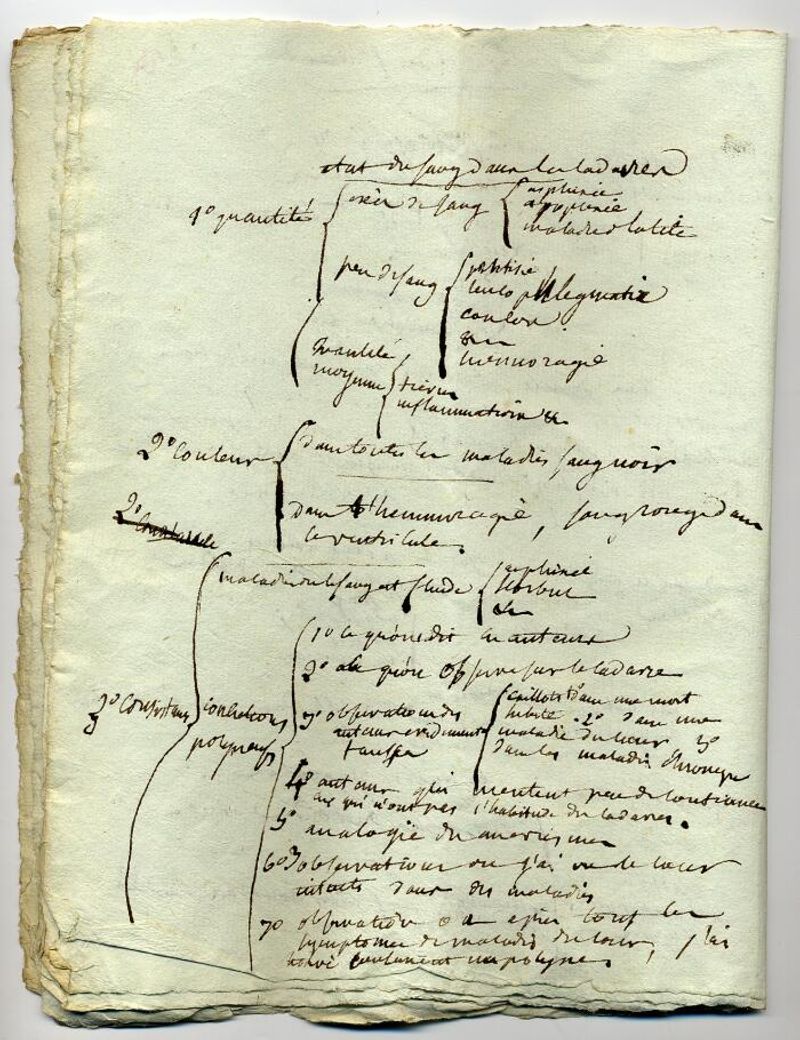 état du sang dans les cadavres
1° quantité
excès de sang
asphixie
apoplexie
maladie de la tête
peu de sang
phtisie
leucophlegmatie
cancer
&c
hemmoragie
quantité
moyenne
fievres
inflammations &c
2° Couleur
dans toutes les maladies sang noir
dans l'hemmoragie, sang rouge dans
le ventricule.
2°
maladies ou le sang est fluide
asphixie
scorbut
&c
3° Consistance
concretions
polypeuses
1° ce qu'ont dit les auteurs
2° ce qu'on observe sur le cadavre
3° observations des
auteurs evidemment
fausses
caillots dans une mort
subite. 2° dans une
maladie du coeur 3°
dans les maladies chroniques
4° auteurs qui meritent peu de confiance
ceux qui n'ont pas l'habitude des cadavres.
5° analogie des anevrismes
6° 3 observations ou j'ai vu le coeur
intact dans des maladies
7° observation où après tous les
symptomes de maladies du coeur, j'ai
trouvé seulement un polype.